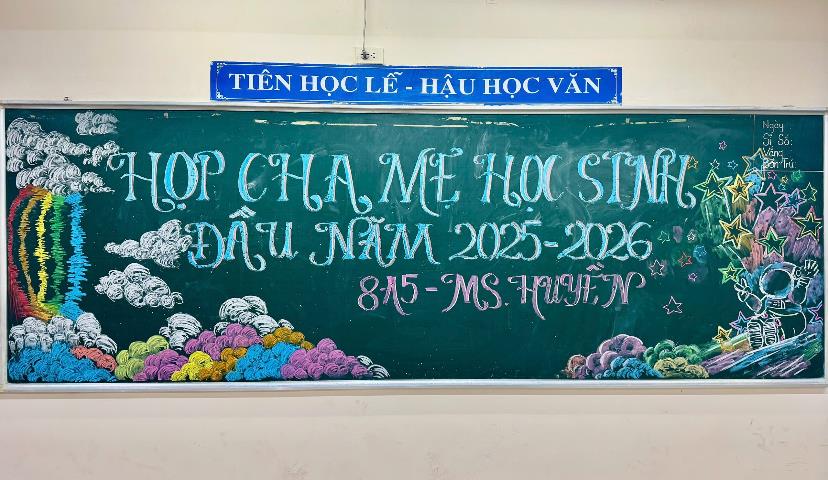 TIÊN HỌC LỄ - HẬU HỌC VĂN
HỌP CHA MẸ HỌC SINH
ĐẦU NĂM 2025-2026
8A5 - MS. HUYỀN
Ngày
Sĩ Số:
Vắng
Bán Trú: